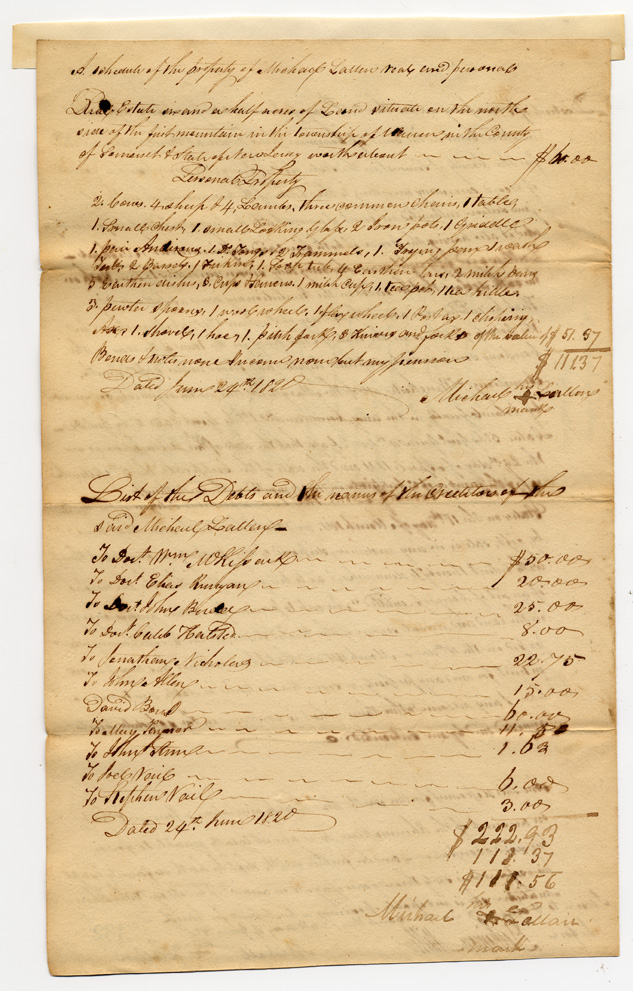 A schedule of the property of Michael Lallen real and personal
Real Estate one and a half acres of Land situate on the north
side of the first mountain in the township of Warren in the County
of Somerset & State of New Jersey worth about $60.00
Personal Property
2 Cows. 4 sheep & 4 Lambs, three common chairs, 1 table,
1 Small Chest, 1 small Looking Glass 2 Iron pots, 1 Griddle
1 pair Andirons, 1 Tongs 2 Trammels, 1 Frying pan
Tubs, 2 Barrels, 1 Firkin, 1 4 Earthen 2 milk
5 Earthen dishes, 3 Cups & 1 milk Cup, 1 teapot, 1 tea kettle,
3 pewter spoons, 1 wool wheel, 1 flax wheel, 1 1 chopping
Axe 1 shovel, 1 hoe, 1 pitch fork, 3 Knives and forks of the value of $51.37
Bonds & notes, none Income, none but my pension $111.37
Dated June 24th 1820
Michael his Lallen
mark
List of the Debts and the names of the Creditors of the
said Michael Lallen
To Doct. Wm McKissack $50.00
To Doct Elias Runyan 20.00
To Doct John 25.00
To Doct. Caleb Halsted 8.00
To Jonathan Nicholas 22.75
To John Allen 15.00
David 60.00
To Mary
To John 1.63
To Joel Vail 6.00
To Stephen Vail 3.00
Dated 24th June 1820
$222.93
111.37
$111.56
Michael his Lallan
mark